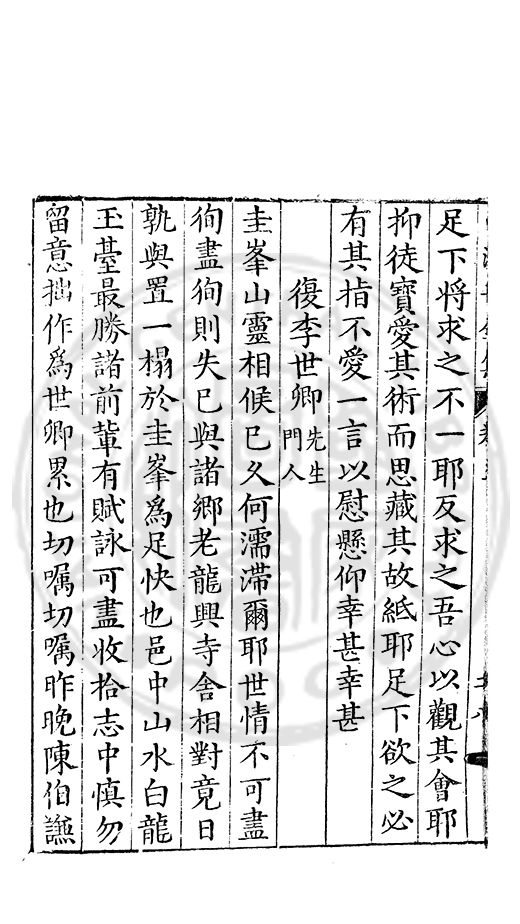 足下將求之不一耶反求之吾心以觀其會耶
抑徒寶愛其術而思藏其故紙耶足下欲之必
有其指不愛一言以慰懸仰幸甚幸甚
復李世卿先生門人
圭峯山靈相候已久何濡滯爾耶世情不可盡
徇盡徇則失已與諸鄉老龍興寺舍相對竟日
孰與置一榻於圭峯爲足快也邑中山水白龍
玉臺最勝諸前軰有賦詠可盡收拾志中慎勿
留意拙作爲世卿累也切嘱切嘱昨晚陳伯謙